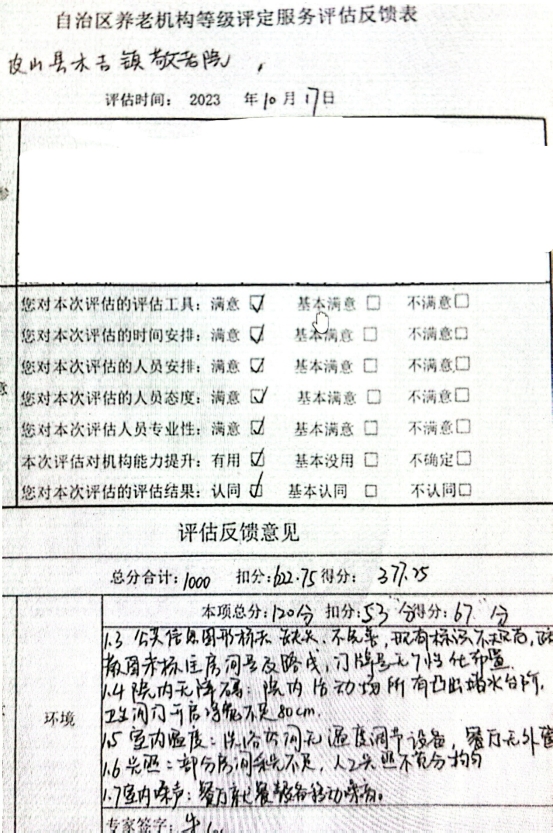 自治区养老机构等级评定服务评估反馈表
皮山县木吉镇敬老院
评估时间: 2023 年10月17日
您对本次评估的评估工具: 满意 ☑ 基本满意 □ 不满意 □
您对本次评估的时间安排: 满意 ☑ 基本满意 □ 不满意 □
您对本次评估的人员安排: 满意 ☑ 基本满意 □ 不满意 □
您对本次评估的人员态度: 满意 ☑ 基本满意 □ 不满意 □
您对本次评估人员专业性: 满意 ☑ 基本满意 □ 不满意 □
本次评估对机构能力提升: 有用 ☑ 基本没用 □ 不确定 □
您对本次评估的评估结果: 认同 ☑ 基本认同 □ 不认同 □
评估反馈意见
总分合计: 1000 扣分: 622.75 得分: 377.25
本项总分: 120分 扣分: 53 分 得分: 67 分
环境
1.3 公共信息图形标志缺失、不完善, 现有标识不规范,
散图未标注房间号及路线, 门牌号无个性化布置.
1.4 院内无障碍: 院内活动场所有凸出
卫生间门开启净宽不足80cm.
1.5 室内温度: 洗浴空间无温度调节设备, 餐厅无外窗
1.6 光照: 部分房间采光不足, 人工光照不充分均匀
1.7 室内噪声: 餐厅
专家签字: